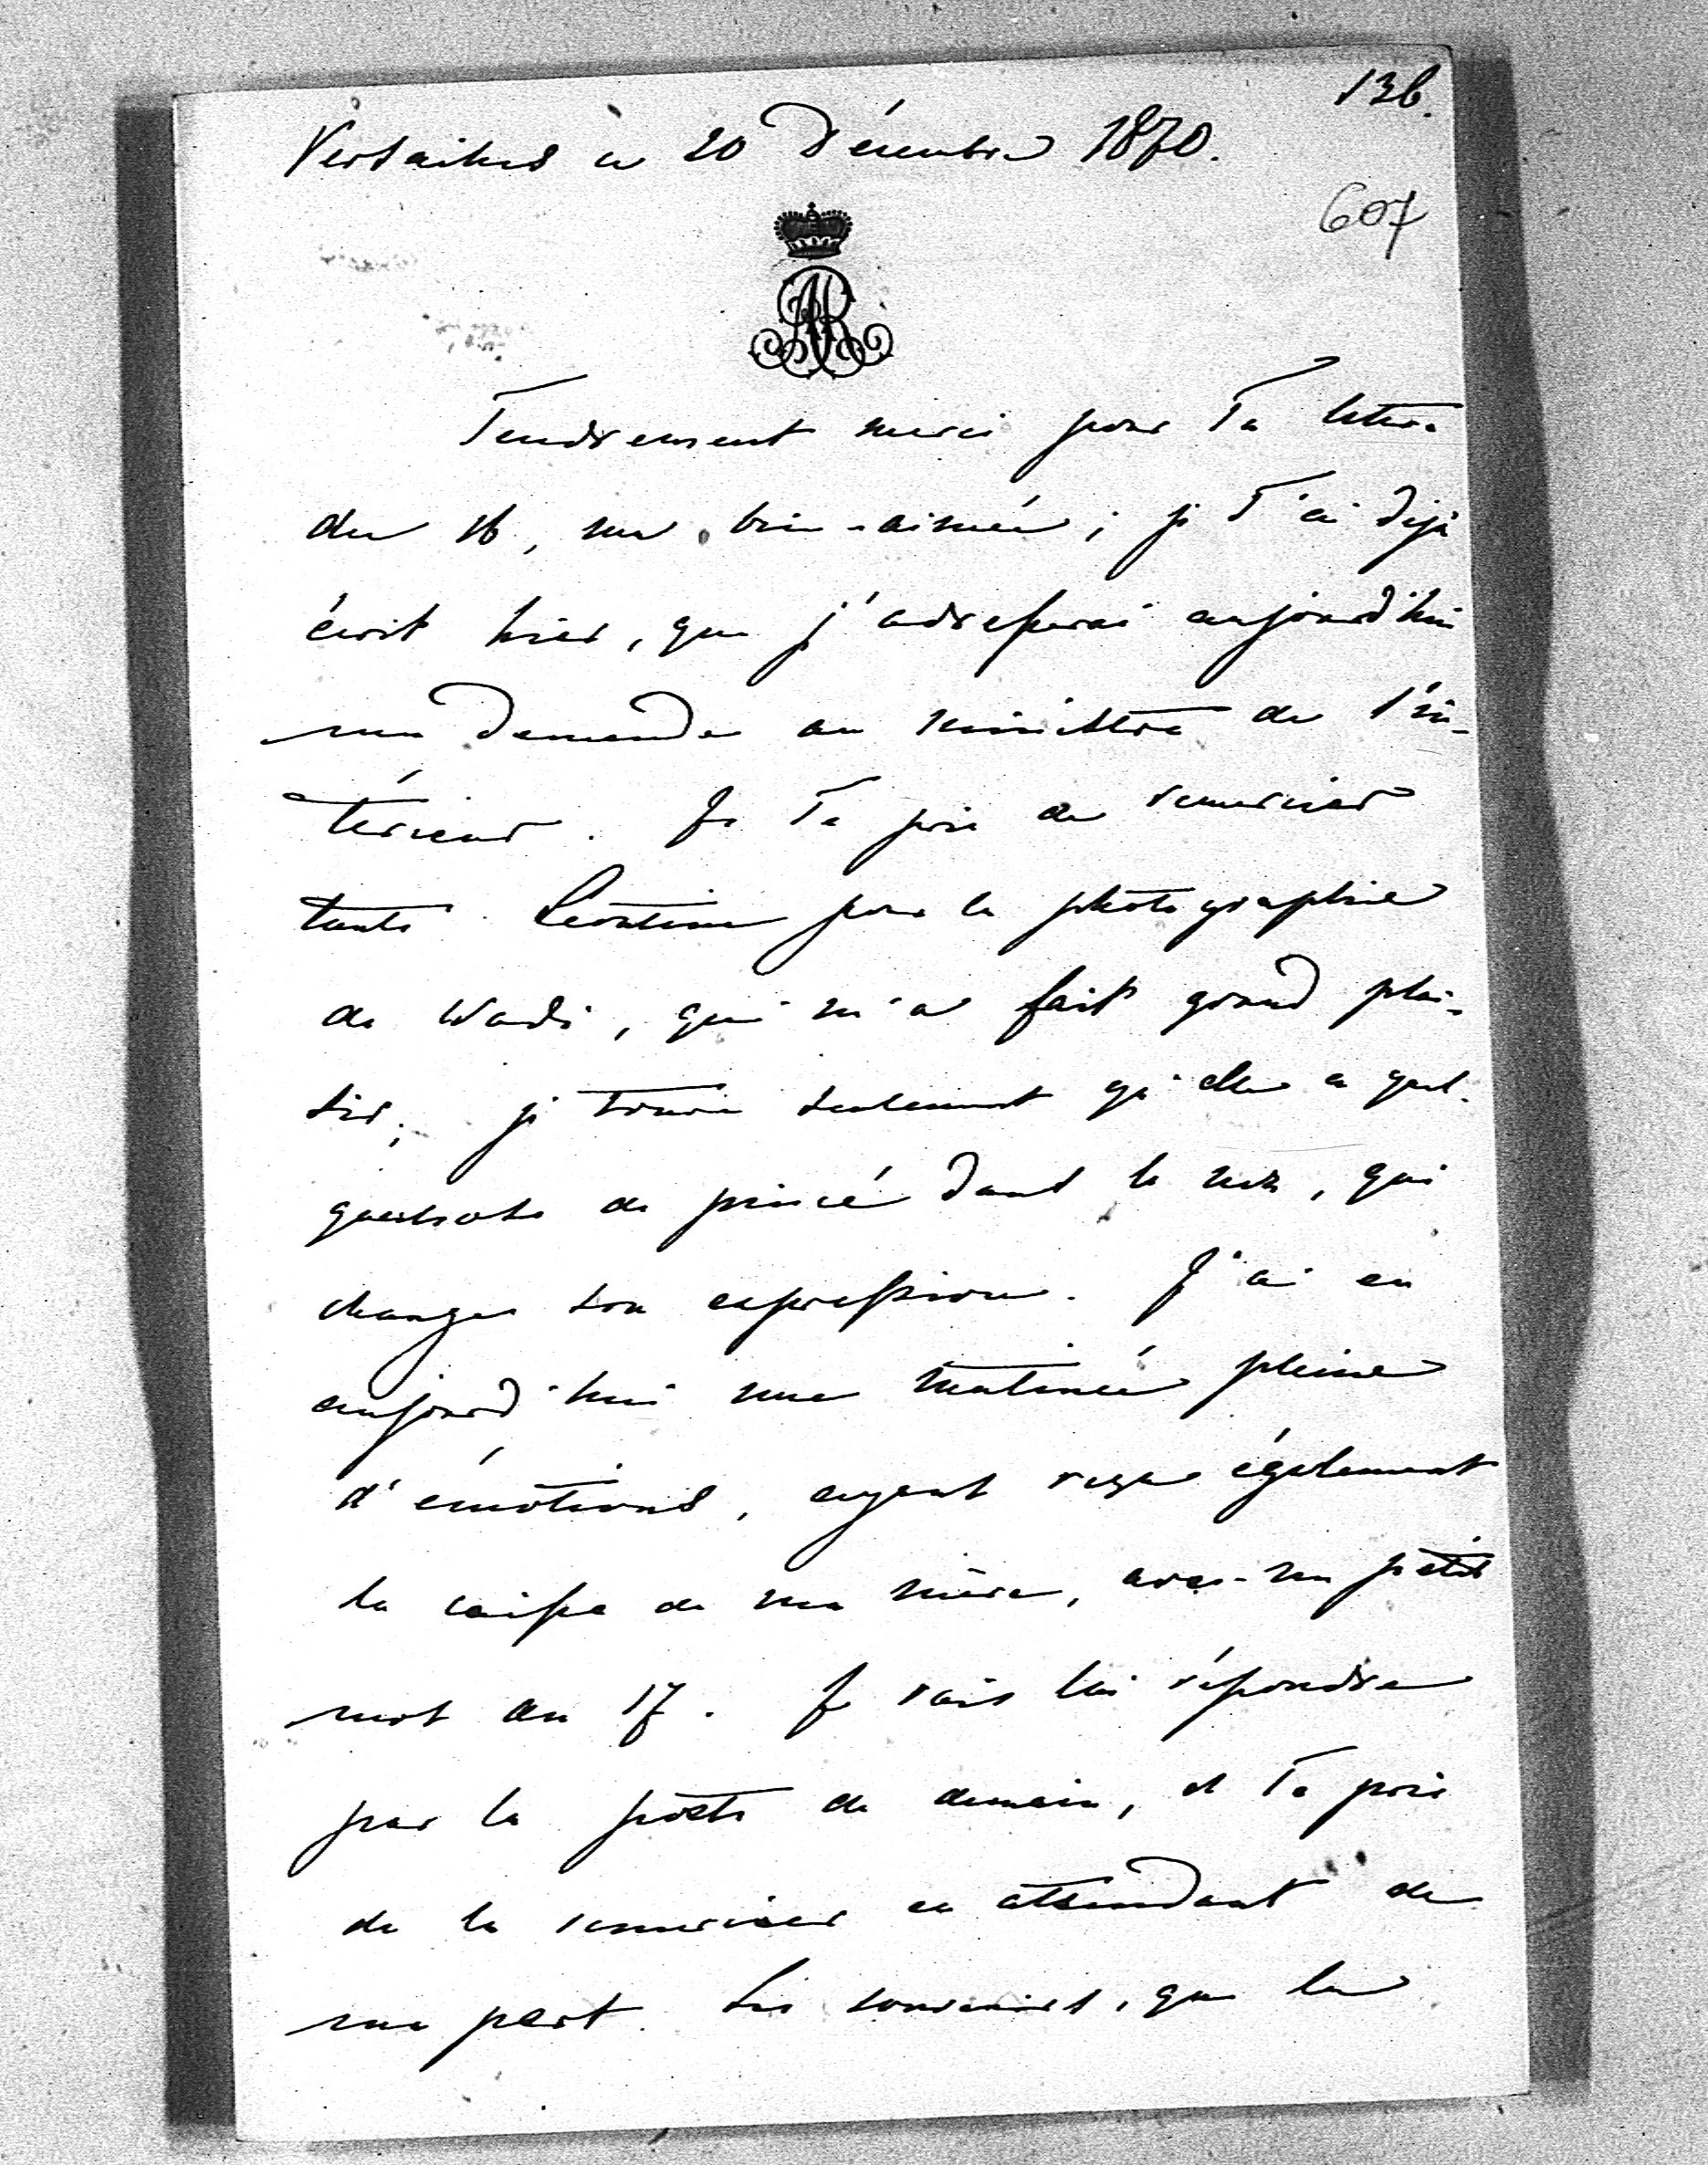 136.
Versailles ce 20 Décembre 1870.
607
AR
Tendrement merci pour Ta lettre
du 16, ma bien-aimée; je T'ai déjà
écrit hier, que j'adresserai aujourd'hui
ma demande au ministère de l'in-
térieur. Je Te prie de remercier
tante Léontine pour la photographie
de Wadi, qui m'a fait grand plai-
sir; je trouve seulement qu'elle a quel-
que chose de pincé dans le nez, qui
change son expression. J'ai eu
aujourd'hui une matinée pleine
d'émotions, ayant reçu également
la caisse de ma mère, avec un petit
mot du 17. Je vais lui répondre
par la poste de demain, et Te prie
de la remercier en attendant de
ma part. Les souvenirs, que la